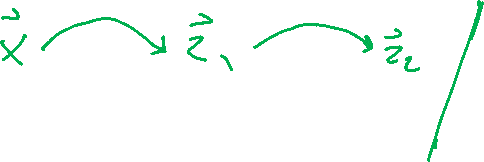 x⃗ z⃗₁ z⃗₂